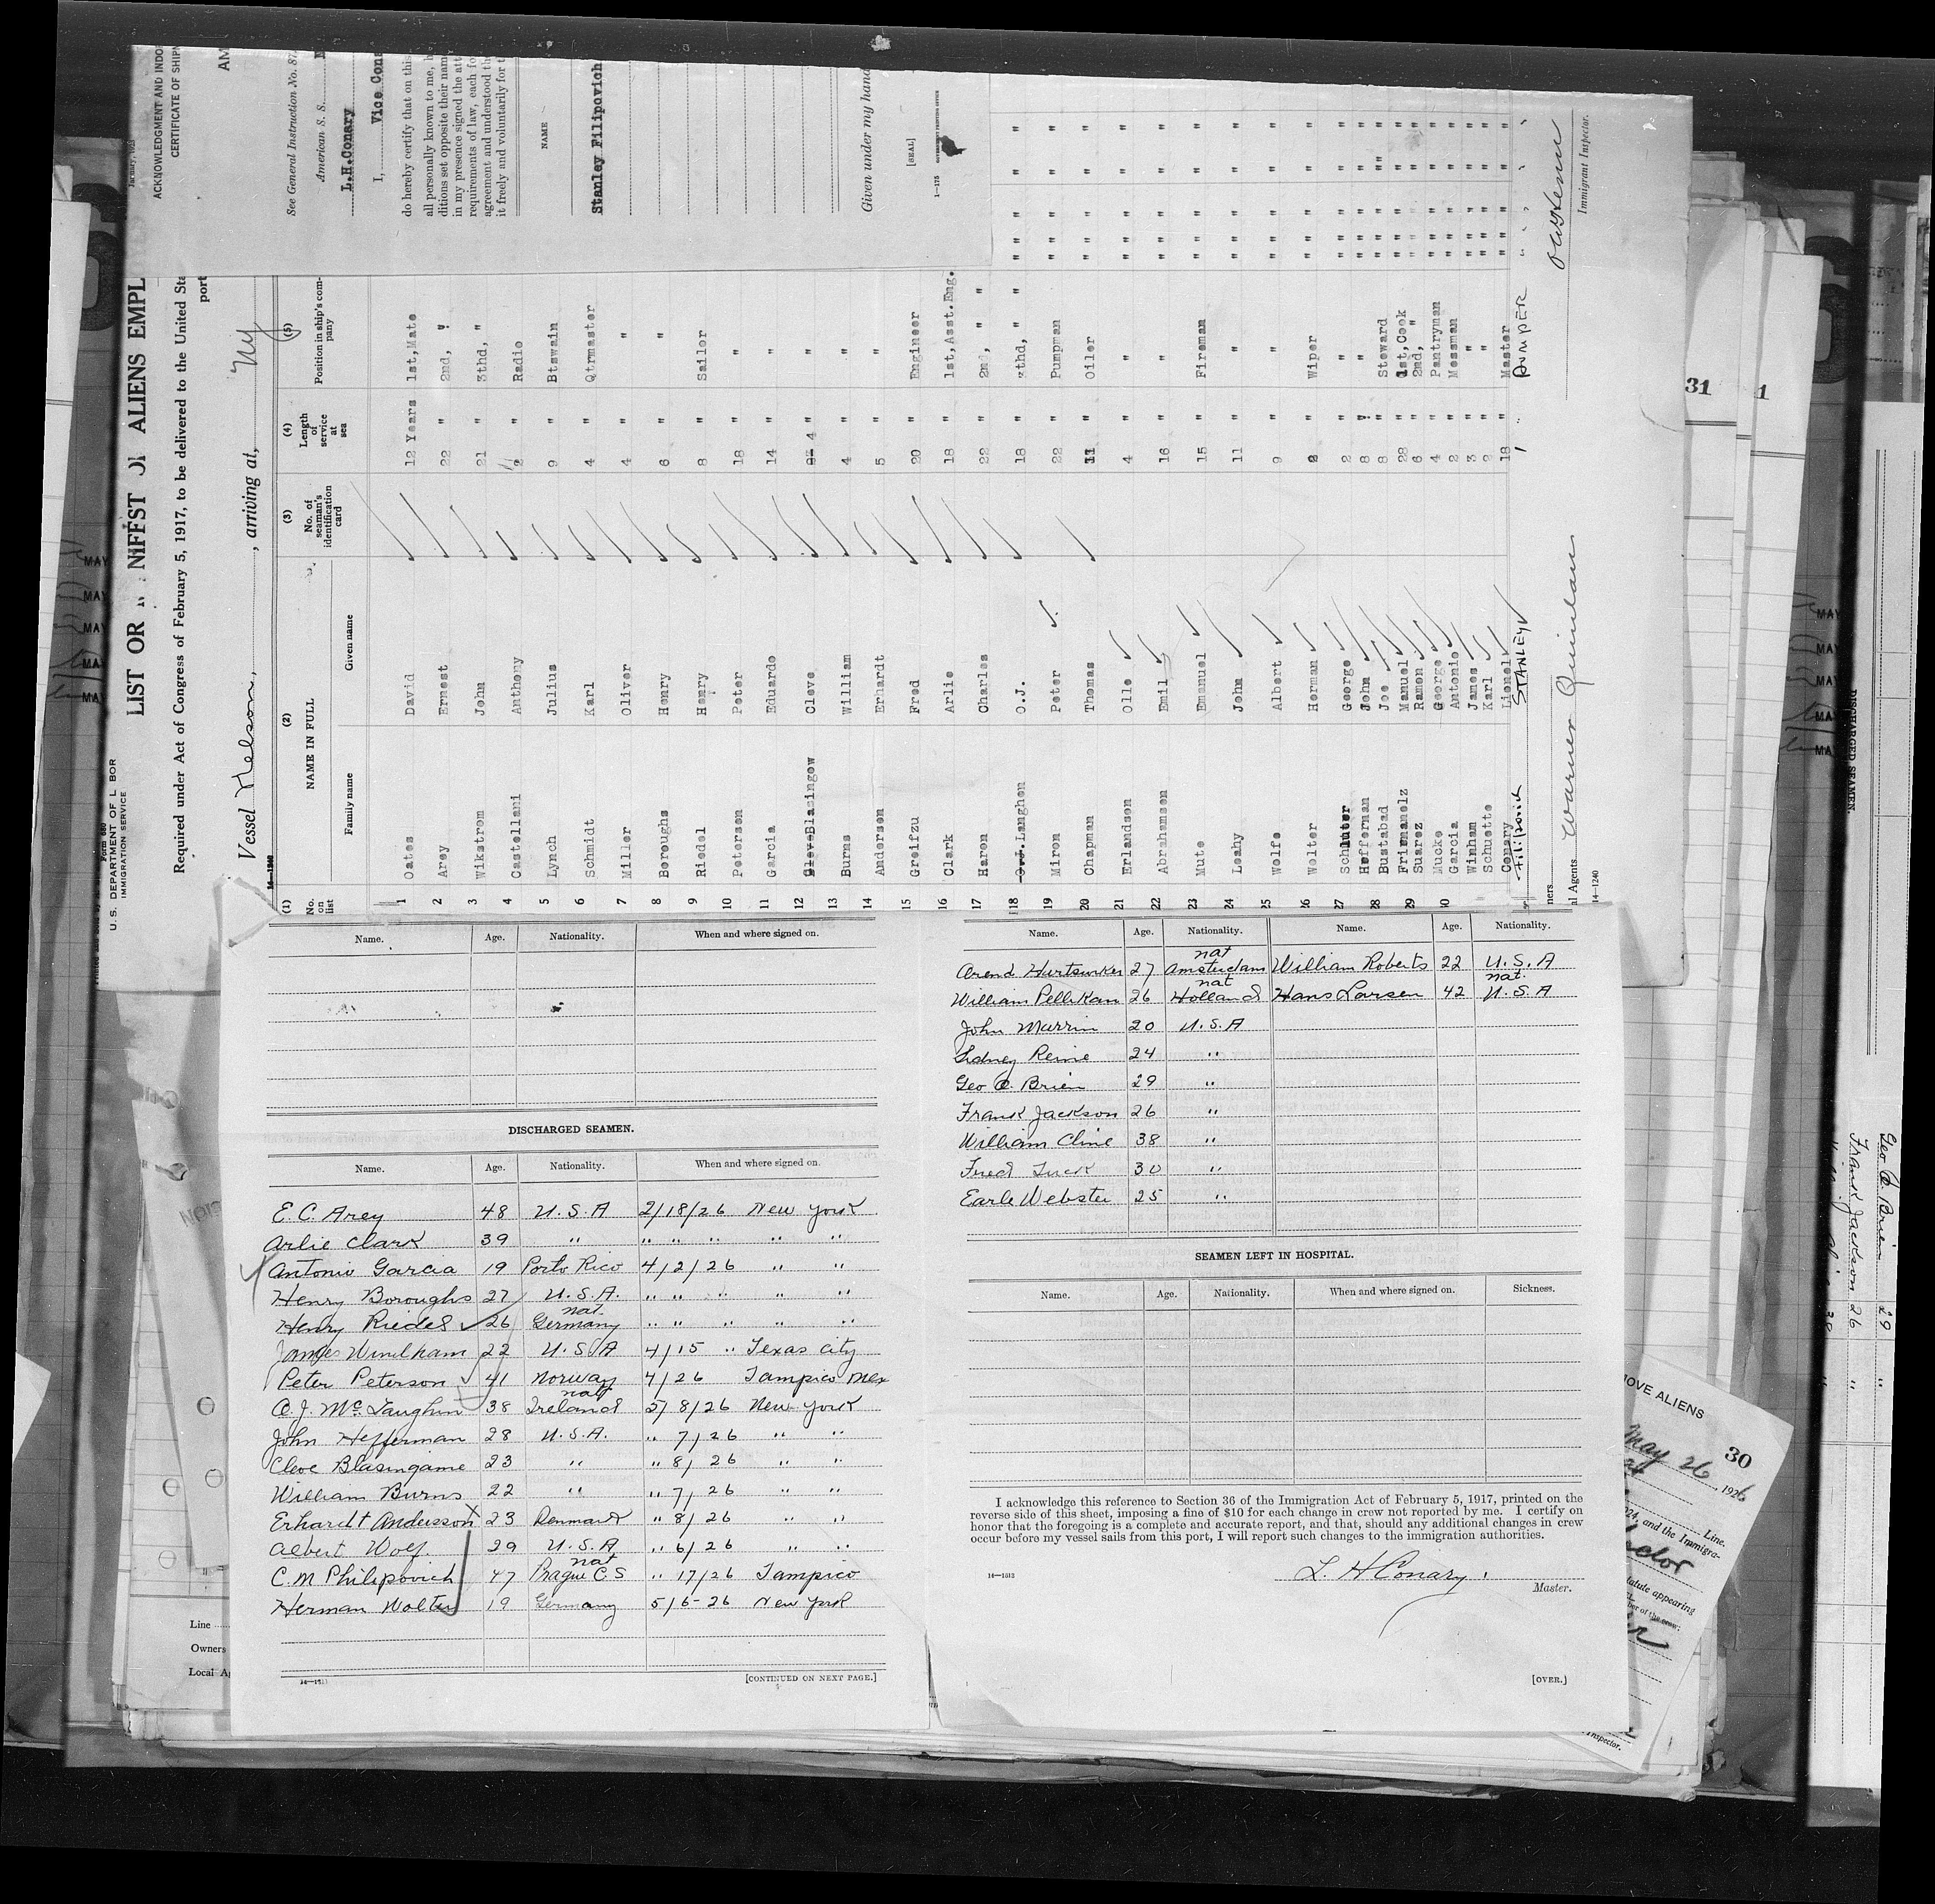 ACKNOWLEDGMENT AND INDO
CERTIFICATE OF SHIPM
AM
See General Instruction No. 87
American S. S.
L.H.Conary
I, Vice Cons
do hereby certify that on this
all personally known to me, b
ditions set opposite their name
in my presence signed the att
requirements of law, each fo
agreement and understood the
it freely and voluntarily for t
NAME
Stanley Filipovich
Given under my hand
[SEAL]
1—175
Form 680
U.S. DEPARTMENT OF L BOR
IMMIGRATION SERVICE
LIST OR NIFEST OF ALIENS EMPL
Required under Act of Congress of February 5, 1917, to be delivered to the United Sta
port
Vessel Nelson, arriving at, NY
14—1240
(1) (2) (3) (4) (5)
No. on list
NAME IN FULL
Family name Given name
No. of seaman's identification card
Length of service at sea
Position in ship's company
1 Oates David 12 Years 1st,Mate
2 Arey Ernest 22 " 2nd, "
3 Wikstrom John 21 " 3thd, "
4 Castellani Anthony 2 " Radio
5 Lynch Julius 9 " Btswain
6 Schmidt Karl 4 " Qtrmaster
7 Miller Oliver 4 " "
8 Boroughs Henry 6 " "
9 Riedel Henry 8 " Sailor
10 Petersen Peter 18 " "
11 Garcia Eduardo 14 " "
12 Blasingow Cleve 4 " "
13 Burns William 4 " "
14 Andersen Erhardt 5 " "
15 Greifzu Fred 20 " Engineer
16 Clark Arlie 18 " 1st,Asst.Eng.
17 Haron Charles 22 " 2nd, " "
18 Langhen O.J. 18 " 3thd, " "
19 Miron Peter 22 " Pumpman
20 Chapman Thomas 11 " Oiler
21 Erlandson Olle 4 " "
22 Abrahamsen Emil 16 " "
23 Mute Emanuel 15 " Fireman
24 Leahy John 11 " "
25 Wolfe Albert 9 " "
26 Wolter Herman 2 " Wiper
27 Schluter George 2 " "
28 Heffernan John 8 " "
29 Bustabad Joe 8 " Steward
30 Frismanelz Manuel 28 " 1st,Cook
Suarez Ramon 6 " 2nd, "
Mucke George 4 " Pantryman
Garcia Antonio 2 " Messman
Winham James 3 " "
Schuette Karl 2 " "
Conary Lionel 18 " Master
Filipovich STANLEY 1 "
Warner Quinlan
ners
al Agents
14—1240
Immigrant Inspector.
Name. Age. Nationality. When and where signed on.
DISCHARGED SEAMEN.
Name. Age. Nationality. When and where signed on.
E. C. Arey 48 U.S.A 2/18/26 New York
Arlie Clark 39 " " " " " "
Antonio Garcia 19 Porto Rico 4/2/26 " "
Henry Boroughs 27 U.S.A. " " " " "
Henry Riedel 26 nat. Germany " " " " "
James Windham 22 U.S.A 4/15 " Texas City
Peter Peterson 41 Norway 4/26 Tampico Mex
O. J. McLaughin 38 nat Ireland 5/8/26 New York
John Hefferman 28 U.S.A. " 7/26 " "
Cleve Blasingame 23 " " 8/26 " "
William Burns 22 " " 7/26 " "
Erhardt Andersson 23 Denmark " 8/26 " "
Albert Wolf. 29 U.S.A " 6/26 " "
C. M Philipovich 47 nat Prague C.S " 17/26 Tampico
Herman Wolter 19 Germany 5/6-26 New York
[CONTINUED ON NEXT PAGE.]
Name. Age. Nationality. Name. Age. Nationality.
Arend Hurtswker 27 nat Amsterdam William Roberts 22 U.S.A
William Pellikan 26 nat Holland Hans Larsen 42 nat. U.S.A
John Murrin 20 U.S.A
Sidney Reine 24 "
Geo O. Brien 29 "
Frank Jackson 26 "
William Cline 38 "
Fred Tuck 30 "
Earle Webster 25 "
SEAMEN LEFT IN HOSPITAL.
Name. Age. Nationality. When and where signed on. Sickness.
I acknowledge this reference to Section 36 of the Immigration Act of February 5, 1917, printed on the
reverse side of this sheet, imposing a fine of $10 for each change in crew not reported by me. I certify on
honor that the foregoing is a complete and accurate report, and that, should any additional changes in crew
occur before my vessel sails from this port, I will report such changes to the immigration authorities.
14—1513
L. H Conary.
Master.
[OVER.]
Line
Owners
Local Ag
OVE ALIENS
30
May 26, 1926
Line.
224, and the Immigra-
tatute appearing
Inspector.
31
1
DISCHARGED SEAMEN.
Geo O. Brien 29 "
Frank Jackson 26 "